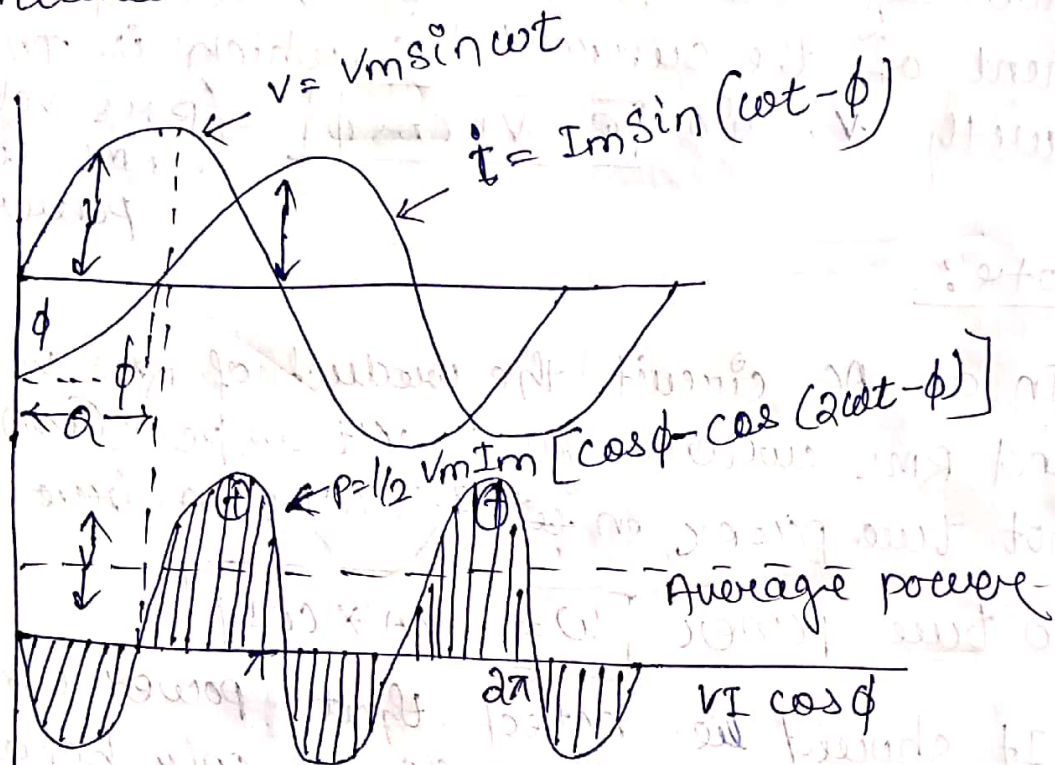 v = Vm sin ωt
i = Im sin (ωt - ϕ)
ϕ
ϕ
Q
⊕
P = 1/2 Vm Im [cos ϕ - cos (2ωt - ϕ)]
⊕
Average power
π
2π
VI cos ϕ